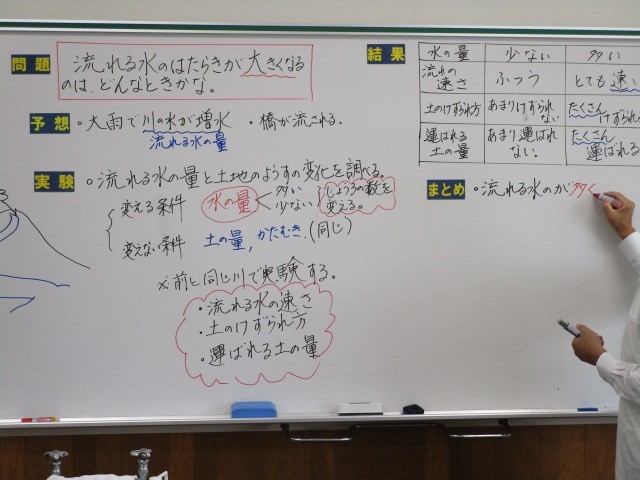 問題
流れる水のはたらきが大きくなる
のは、どんなときかな。
予想
・大雨で川の水が増水 ・橋が流される.
流れる水の量
実験
・流れる水の量と土地のようすの変化を調べる。
変える条件 水の量 多い 少ない
じょうろの数を
変える。
変えない条件 土の量, かたむき. (同じ)
※前と同じ川で実験する。
・流れる水の速さ
・土のけずられ方
・運ばれる土の量
結果
水の量 少ない 多い
流れの
速さ ふつう とても速い
土のけずられ方 あまりけずられ
ない たくさん
けずられ
運ばれる
土の量 あまり運ばれ
ない. たくさん
運ばれる
まとめ
・流れる水のが多く